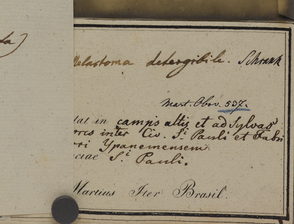 Melastoma detergibile. Schrank
Mart. Obs. 537.
tat in campis altis et ad Sylvas
inter Civ. St. Pauli et Fabri
Ypanemensem
ciae St. Pauli.
Martius Iter Brasil.